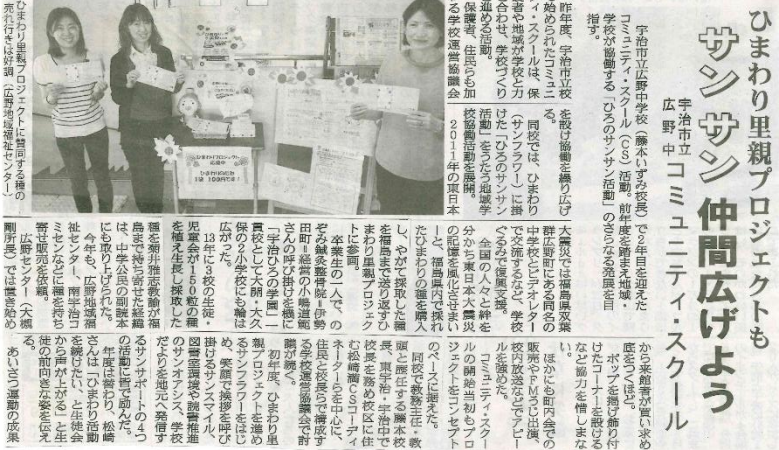 ひまわり里親プロジェクトも
サンサン 仲間広げよう
宇治市立
広野中
コミュニティ・スクール
宇治市立広野中学校（藤本いずみ校長）で2年目を迎えた
コミュニティ・スクール（CS）活動。前年度を踏まえ地域・
学校が協働する「ひろのサンサン活動」のさらなる発展を目
指す。
昨年度、宇治市立校
始められたコミュニ
ィ・スクールは、保
者や地域が学校と力
合わせ、学校づくり
進める活動。
保護者、住民らも加
る学校運営協議会
を設け協働を繰り広げ
る。
同校では、ひまわり
（サンフラワー）に掛
けた「ひろのサンサン
活動」をうたう地域学
校協働活動を展開。
2011年の東日本
大震災では福島県双葉
郡広野町にある同名の
中学校とビデオレター
で交流するなど、学校
ぐるみで復興支援。
全国の人々と絆を
分かち東日本大震災
の記憶を風化させまい
ーと、福島県内で採れ
たひまわりの種を購入
し、やがて採取した種
を福島まで送り返すひ
まわり里親プロジェク
トに参画。
卒業生の一人で、の
ぞみ鍼灸整骨院＝伊勢
田町＝経営の小鳴道範
さんの呼び掛けを機に
「宇治ひろの学園」一
貫校として大開・大久
保の2小学校にも輪は
広がった。
13年に3校の生徒・
児童会が150粒の種
を植え生長し採取した
種を菊井雅志教諭が福
島まで持ち寄せた経緯
は、中学公民の副読本
にも取り上げられた。
今年も、広野地域福
祉センター、南宇治コ
ミセンなどに種を持ち
寄せ販売を依頼。
広野センター（大槻
剛所長）では置き始め
から来館者が買い求め
底をつくほど。
ポップを掲げ飾り付
けたコーナーを設ける
など協力を惜しまな
い。
ほかにも町内会での
販売やFMうじ出演、
校内放送などでアピー
ルを強めた。
コミュニティ・スクー
ルの開始当初もプロ
ジェクトをコンセプト
のベースに据えた。
同校で教務主任・教
頭と歴任する藤本校
長、東宇治・宇治中で
校長を務め校区に住
む松崎満CSコーディ
ネーターらを中心に、
住民と校長らで構成す
る学校運営協議会で討
議が続く。
初年度、ひまわり里
親プロジェクトを進め
るサンフラワーをはじ
め、笑顔で挨拶を呼び
掛けるサンスマイル、
図書室環境や読書推進
のサンオアシス、学校
だよりを地元へ発信す
るサンサポートの4つ
の活動に皆で励んだ。
年度は替わり、松崎
さんは「ひまわり活動
を続けたい、と生徒会
から声が上がる」と生
徒の前向きな姿を伝え
る。
あいさつ運動の成果
ひまわり里親プロジェクトに賛同する種の
売れ行きは好調（広野地域福祉センター）
ひまわりプロジェクト